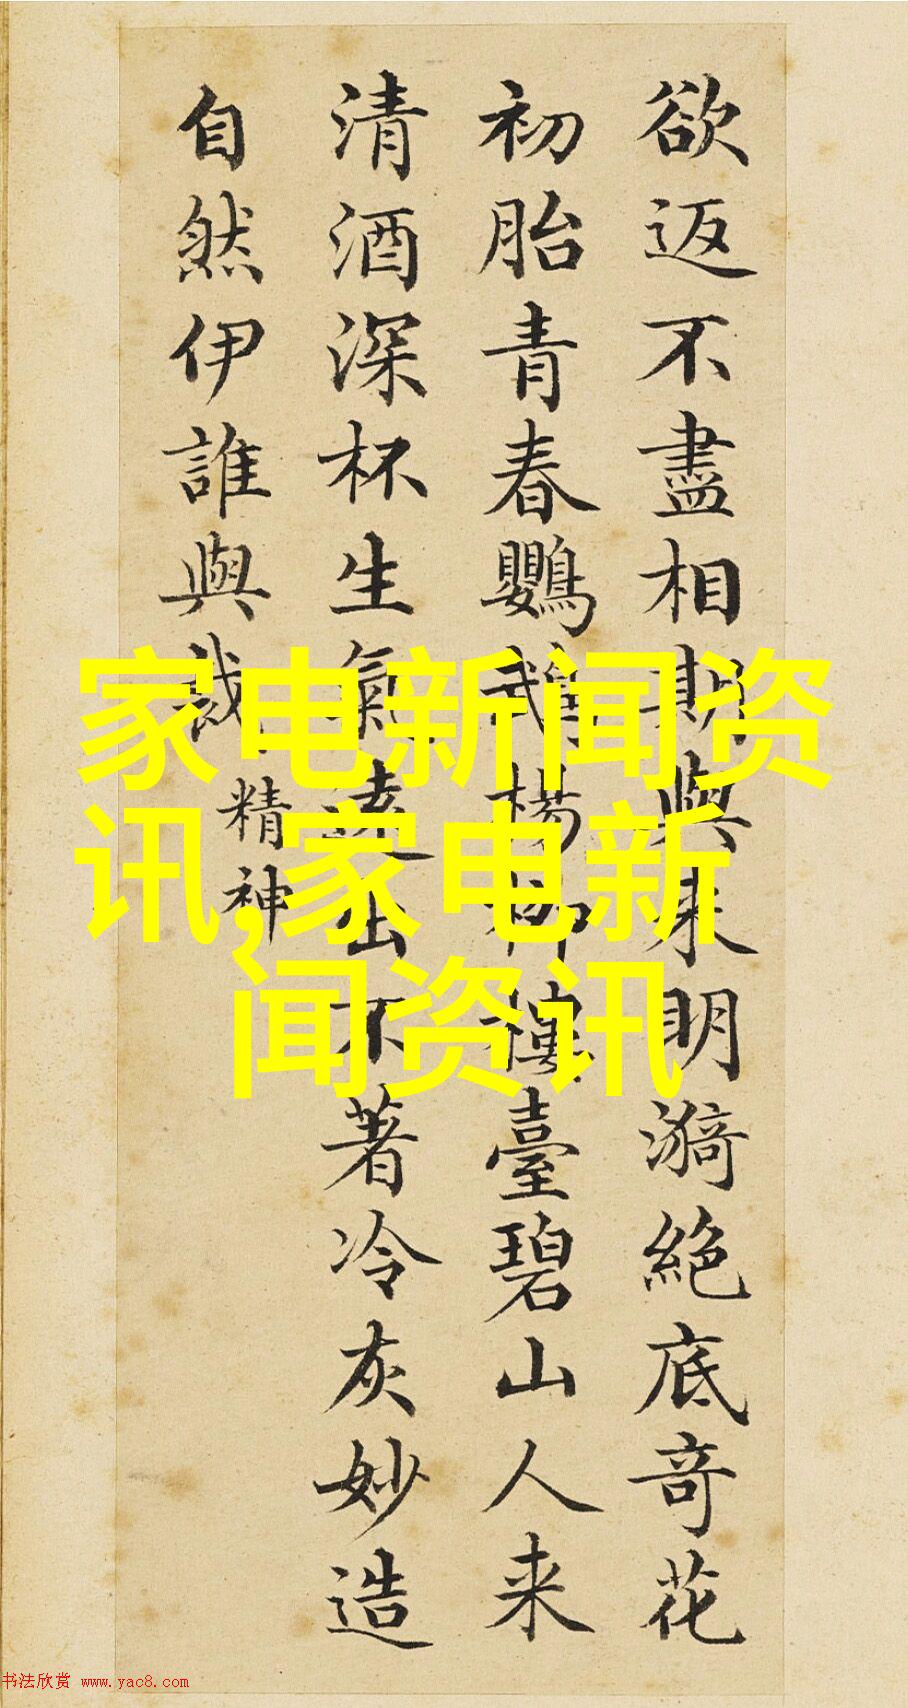 欲返不盡相期與来明漪絶底奇花
初胎青春鸚鵡楊柳樓臺碧山人来
清酒深杯生氣遠出不著冷灰妙造
自然伊誰與裁
精神
家电新闻资
讯,家电新
闻资讯
书法欣赏 www.yac8.com